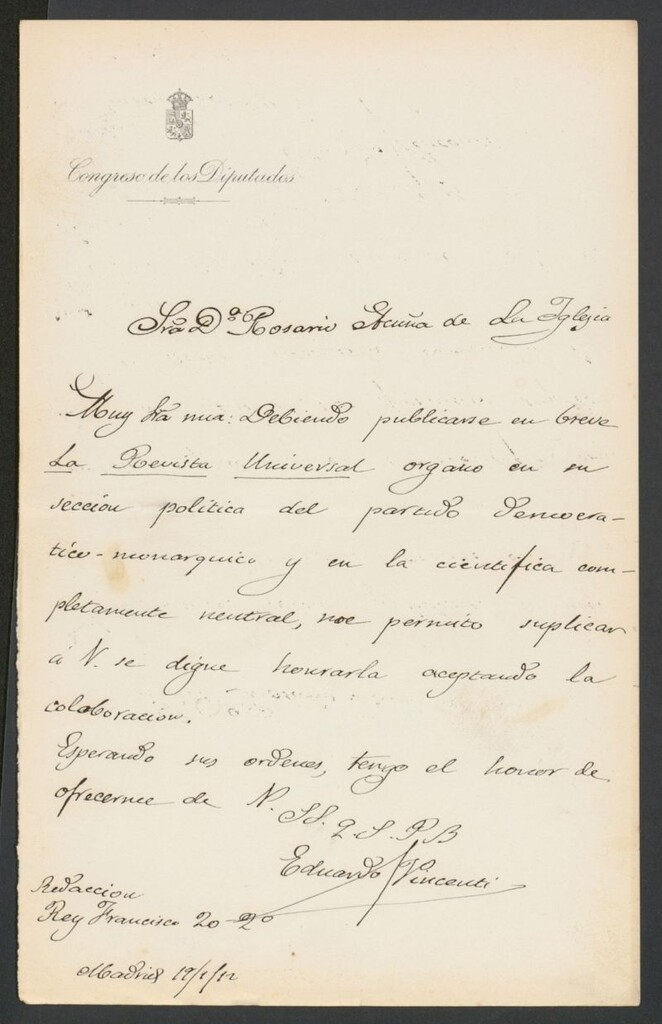 Congreso de los Diputados
Sra Dª Rosario Acuña de La Iglesia
Muy Sra mia: Debiendo publicarse en breve
La Revista Universal organo en su
sección politica del partido democra-
tico-monarquico y en la cientifica com-
pletamente neutral, me permito suplicar
á V. se digne honrarla aceptando la
colaboracion.
Esperando sus ordenes, tengo el honor de
ofrecerme de V. SS.
q. S. P. B
Eduardo Vincenti
Redaccion
Rey Francisco 20-2º
Madrid